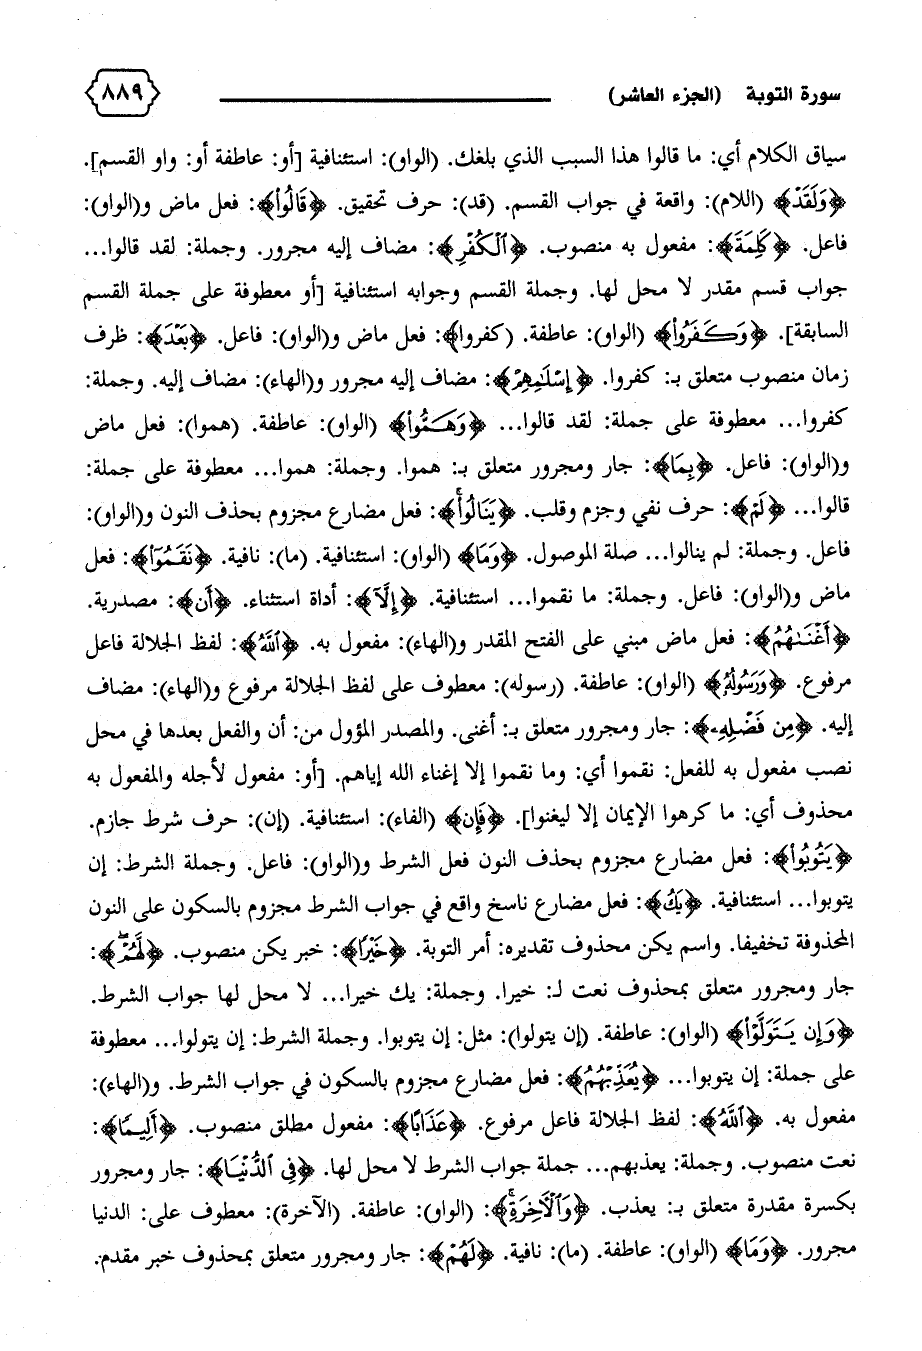 سورة التوبة (الجزء العاشر) ٨٨٩
سياق الكلام أي: ما قالوا هذا السبب الذي بلغك. (الواو): استئنافية [أو: عاطفة أو: واو القسم].
﴿وَلَقَدْ﴾ (اللام): واقعة في جواب القسم. (قد): حرف تحقيق. ﴿قَالُوا۟﴾: فعل ماض و(الواو):
فاعل. ﴿كَلِمَةَ﴾: مفعول به منصوب. ﴿ٱلْكُفْرِ﴾: مضاف إليه مجرور. وجملة: لقد قالوا...
جواب قسم مقدر لا محل لها. وجملة القسم وجوابه استئنافية [أو معطوفة على جملة القسم
السابقة]. ﴿وَكَفَرُوا۟﴾ (الواو): عاطفة. (كفروا﴾: فعل ماض و(الواو): فاعل. ﴿بَعْدَ﴾: ظرف
زمان منصوب متعلق بـ: كفروا. ﴿إِسْلَـٰمِهِمْ﴾: مضاف إليه مجرور و(الهاء): مضاف إليه. وجملة:
كفروا... معطوفة على جملة: لقد قالوا... ﴿وَهَمُّوا۟﴾ (الواو): عاطفة. (هموا): فعل ماض
و(الواو): فاعل. ﴿بِمَا﴾: جار ومجرور متعلق بـ: هموا. وجملة: هموا... معطوفة على جملة:
قالوا... ﴿لَمْ﴾: حرف نفي وجزم وقلب. ﴿يَنَالُوا۟ۚ﴾: فعل مضارع مجزوم بحذف النون و(الواو):
فاعل. وجملة: لم ينالوا... صلة الموصول. ﴿وَمَا﴾ (الواو): استئنافية. (ما): نافية. ﴿نَقَمُوٓا۟﴾: فعل
ماض و(الواو): فاعل. وجملة: ما نقموا... استئنافية. ﴿إِلَّآ﴾: أداة استثناء. ﴿أَنْ﴾: مصدرية.
﴿أَغْنَىٰهُمُ﴾: فعل ماض مبني على الفتح المقدر و(الهاء): مفعول به. ﴿ٱللَّهُ﴾: لفظ الجلالة فاعل
مرفوع. ﴿وَرَسُولُهُۥ﴾ (الواو): عاطفة. (رسوله): معطوف على لفظ الجلالة مرفوع و(الهاء): مضاف
إليه. ﴿مِن فَضْلِهِۦ﴾: جار ومجرور متعلق بـ: أغنى. والمصدر المؤول من: أن والفعل بعدها في محل
نصب مفعول به للفعل: نقموا أي: وما نقموا إلا إغناء الله إياهم. [أو: مفعول لأجله والمفعول به
محذوف أي: ما كرهوا الإيمان إلا ليغنوا]. ﴿فَإِن﴾ (الفاء): استئنافية. (إن): حرف شرط جازم.
﴿يَتُوبُوا۟﴾: فعل مضارع مجزوم بحذف النون فعل الشرط و(الواو): فاعل. وجملة الشرط: إن
يتوبوا... استئنافية. ﴿يَكُ﴾: فعل مضارع ناسخ واقع في جواب الشرط مجزوم بالسكون على النون
المحذوفة تخفيفا. واسم يكن محذوف تقديره: أمر التوبة. ﴿خَيْرًا﴾: خبر يكن منصوب. ﴿لَّهُمْۖ﴾:
جار ومجرور متعلق بمحذوف نعت لـ: خيرا. وجملة: يك خيرا... لا محل لها جواب الشرط.
﴿وَإِن يَتَوَلَّوْا۟﴾ (الواو): عاطفة. (إن يتولوا): مثل: إن يتوبوا. وجملة الشرط: إن يتولوا... معطوفة
على جملة: إن يتوبوا... ﴿يُعَذِّبْهُمُ﴾: فعل مضارع مجزوم بالسكون في جواب الشرط. و(الهاء):
مفعول به. ﴿ٱللَّهُ﴾: لفظ الجلالة فاعل مرفوع. ﴿عَذَابًا﴾: مفعول مطلق منصوب. ﴿أَلِيمًا﴾:
نعت منصوب. وجملة: يعذبهم... جملة جواب الشرط لا محل لها. ﴿فِى ٱلدُّنْيَا﴾: جار ومجرور
بكسرة مقدرة متعلق بـ: يعذب. ﴿وَٱلْـَٔاخِرَةِۚ﴾: (الواو): عاطفة. (الآخرة): معطوف على: الدنيا
مجرور. ﴿وَمَا﴾ (الواو): عاطفة. (ما): نافية. ﴿لَهُمْ﴾: جار ومجرور متعلق بمحذوف خبر مقدم.